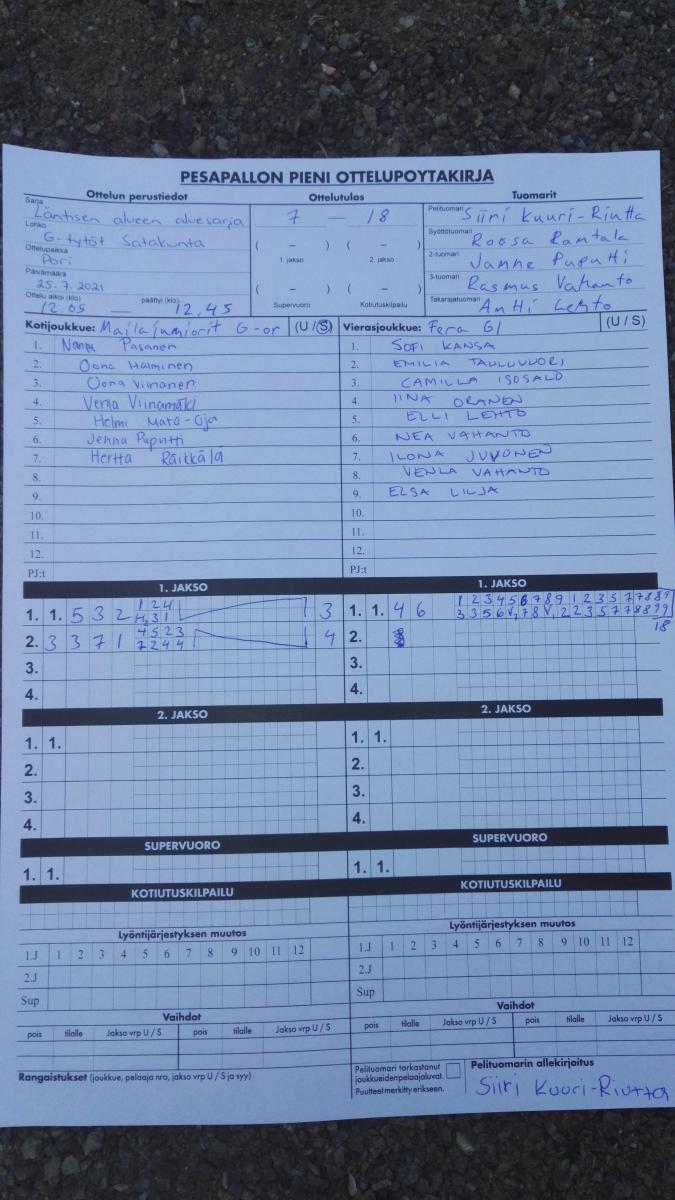 PESAPALLON PIENI OTTELUPOYTAKIRJA
Ottelun perustiedot Ottelutulos Tuomarit
Sarja Läntisen alueen aluesarja
Lohko G-tytöt Satakunta
Ottelupaikka Pori
Päivämäärä 25.7.2021
Ottelu alkoi (klo) 12.05 päättyi (klo) 12.45
7 – 18
( – ) ( – )
1. jakso 2. jakso
( – ) ( – )
Supervuoro Kotiutuskilpailu
Pelituomari Siiri Kuuri-Riutta
Syöttötuomari Roosa Rantala
2-tuomari Janne Puputti
3-tuomari Rasmus Vahanto
Takarajatuomari Antti Lehto
Kotijoukkue: Mailajuniorit G-or (U/S) Vierasjoukkue: Fera G1 (U / S)
1. Nanna Pasanen
2. Oona Halminen
3. Oona Viinanen
4. Venla Viinamäki
5. Helmi Mato-Oja
6. Jenna Puputti
7. Hertta Räikkälä
8.
9.
10.
11.
12.
PJ:t
1. SOFI KANSA
2. EMILIA TAULUVUORI
3. CAMILLA ISOSALO
4. IINA ORANEN
5. ELLI LEHTO
6. NEA VAHANTO
7. ILONA JUVONEN
8. VENLA VAHANTO
9. ELSA LILJA
10.
11.
12.
PJ:t
1. JAKSO 1. JAKSO
1. 1. 5 3 2 1 2 4 3
4, 3 1
2. 3 3 7 1 4 5 2 3 4
7 2 4 4
3.
4.
1. 1. 4 6 1 2 3 4 5 6 7 8 9 1 2 3 5 7 7 8 8 9
3 3 5 6 V, 7 8 V, 2 2 3 5 7 7 8 8 9 9
18
2.
3.
4.
2. JAKSO 2. JAKSO
1. 1. 1. 1.
2. 2.
3. 3.
4. 4.
SUPERVUORO SUPERVUORO
1. 1. 1. 1.
KOTIUTUSKILPAILU KOTIUTUSKILPAILU
Lyöntijärjestyksen muutos Lyöntijärjestyksen muutos
1.J 1 2 3 4 5 6 7 8 9 10 11 12 1.J 1 2 3 4 5 6 7 8 9 10 11 12
2.J 2.J
Sup Sup
Vaihdot Vaihdot
pois tilalle Jakso vrp U / S pois tilalle Jakso vrp U / S pois tilalle Jakso vrp U / S pois tilalle Jakso vrp U / S
Rangaistukset (joukkue, pelaaja nro, jakso vrp U / S ja syy)
Pelituomari tarkastanut
joukkueiden pelaajaluvat.
Puutteet merkitty erikseen.
Pelituomarin allekirjoitus
Siiri Kuuri-Riutta